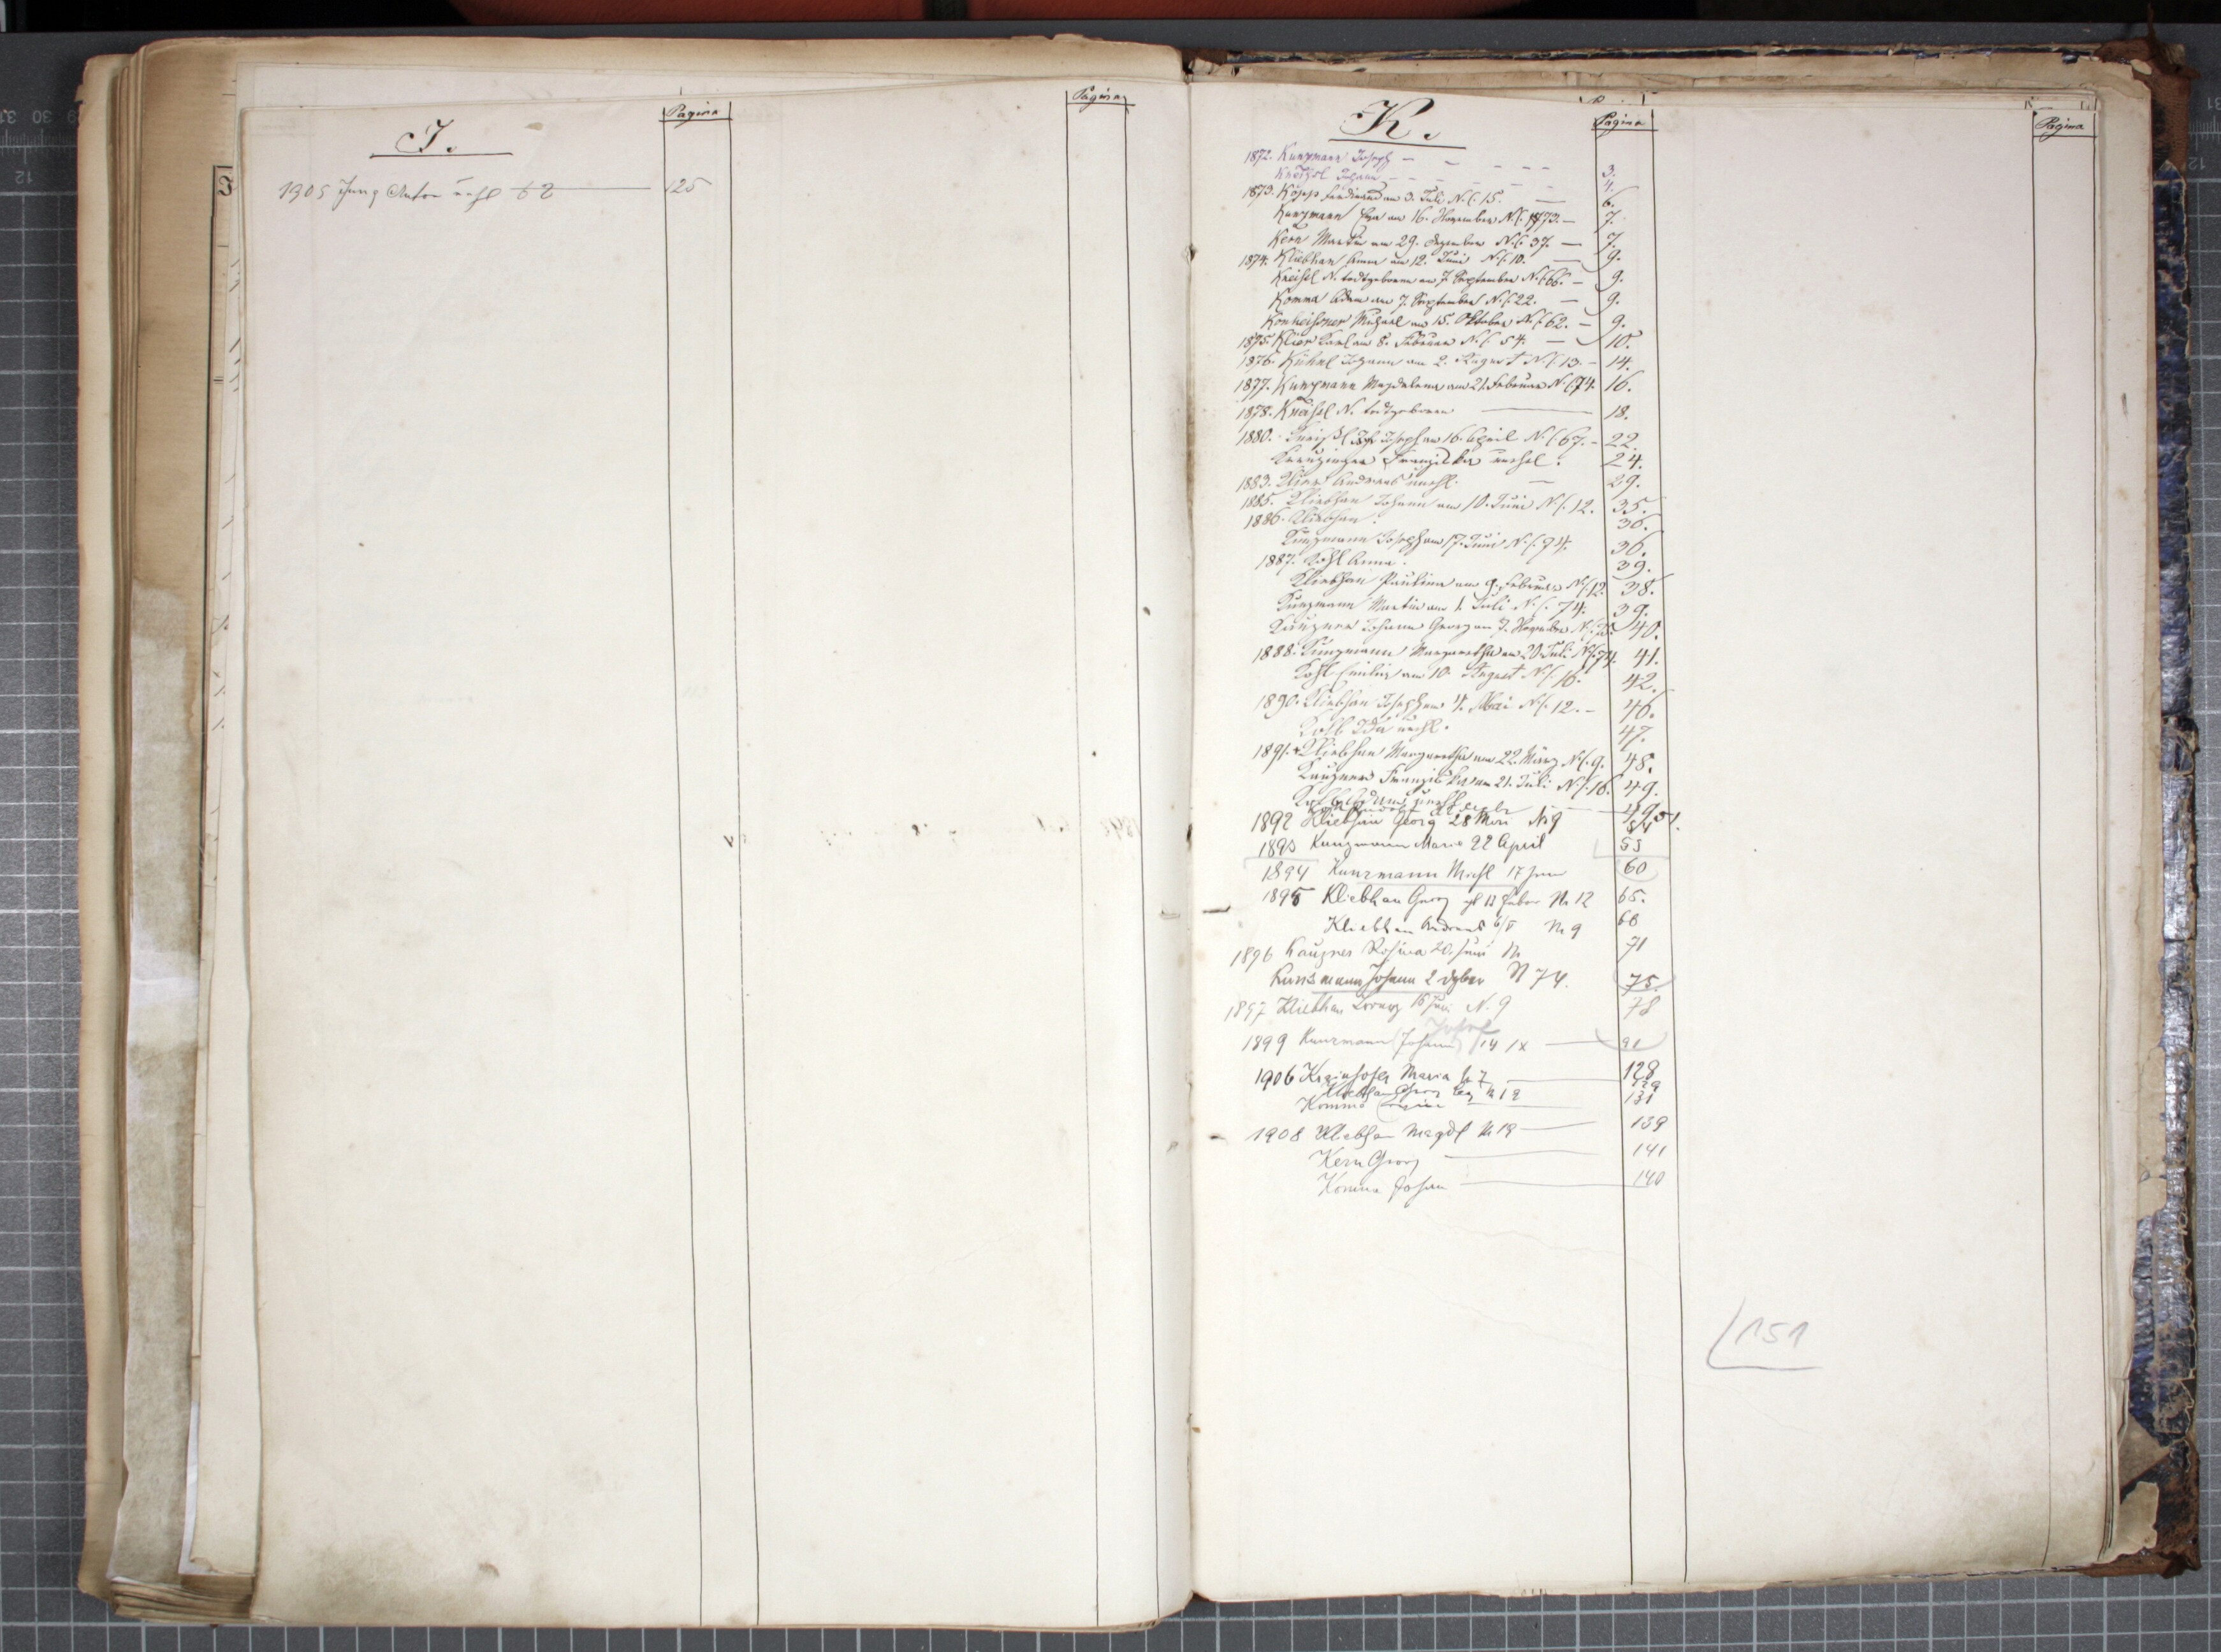 Pagina
Pagina
J.
1905 Jung Anton unehl 62 125
K.
Pagina
Pagina
1872. Kunzmann Joseph 3.
Kneißl Johann 4.
1873. Köppp Ferdinand am 3. Juli N.C. 15. 6.
Kunzmann Eva am 16. November N.C. 73. 7.
Kern Martin am 29. Dezember N.C. 37. 7.
1874. Kliebhan Anna am 12. Juni N.C. 10. 9.
Kneißl N. todtgeboren am 7. September N.C. 66. 9.
Komma Adam am 7. September N.C. 22. 9.
Konheisner Michael am 15. Oktober N.C. 62. 9.
1875. Klier Karl am 8. Februar N.C. 54. 10.
1876. Kühnl Johann am 2. August N.C. 13. 14.
1877. Kunzmann Magdalena am 21. Februar N.C. 74. 16.
1878. Kneißl N. todtgeboren 18.
1880. Kneißl Joseph am 16. April N.C. 67. 22.
Kreuzinger Franziska unehel. 24.
1883. Klier Andreas unehl. 29.
1885. Kliebhan Johann am 10. Juni N.C. 12. 35.
1886. Kliebhan. 36.
Kunzmann Joseph am 17. Juni N.C. 74. 36.
1887. Kohl Anna. 39.
Kliebhan Paulina am 9. Februar N.C. 12. 38.
Kunzmann Martin am 1. Juli N.C. 74. 39.
Kauzner Johann Georg am 7. November N.C. 40.
1888. Kunzmann Margaretha am 20. Juli N.C. 74. 41.
Kohl Emilia am 10. August N.C. 16. 42.
1890. Kliebhan Joseph am 4. Mai N.C. 12. 46.
Kohl Ida unehl. 47.
1891. Kliebhan Margaretha am 22. März N.C. 9. 48.
Kauzner Franziska am 21. Juli N.C. 16. 49.
Kohl Adam unehl 49
51.
1892 Kliebhan Georg 28 März N. 9
1893 Kunzmann Maria 22 April 55
1894 Kunzmann Michl 17 Juni 60
1895 Kliebhan Georg 12 Feber N. 12 65.
Kliebhan Andreas N. 9 68
1896 Kauzner Rosina 20. Juni N. 71
Kunzmann Johann 2 Dzber N 74. 75.
1897 Kliebhan Lorenz 15 Juni N. 9 78
Josef
1899 Kunzmann (Johann) 14 IX 91
1906 Krainhofer Maria N 7 128
Kliebhan Georg N 12 129
Komma 131
1908 Kliebhan Magdl N 19 139
Kern Georg 141
Komma Johann 140
151